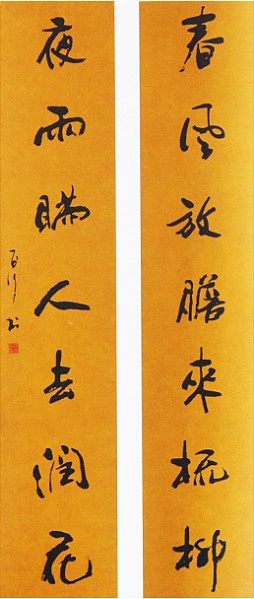 春風放膽來梳柳
夜雨瞞人去潤花